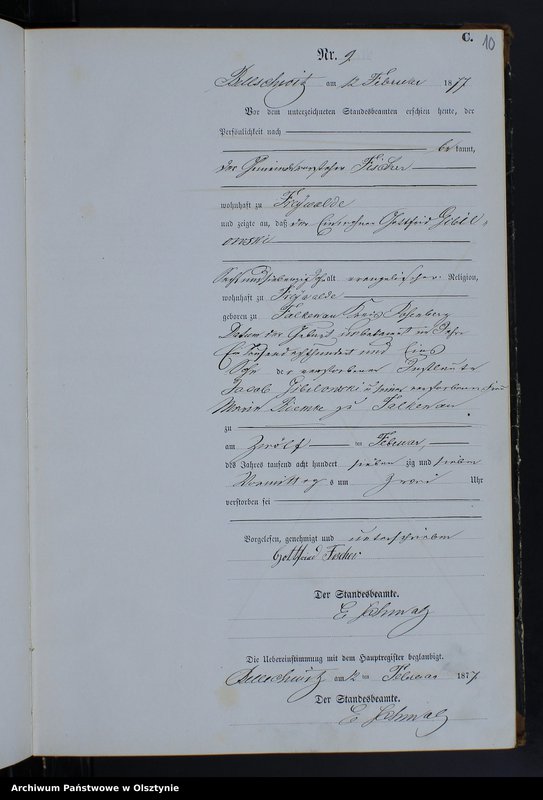 C. 10
Nr. 9
am 12 Februar 1877
Vor dem unterzeichneten Standesbeamten erschien heute, der
Persönlichkeit nach
bekannt,
der Gemeindevorsteher Fischer
wohnhaft zu Freywalde
und zeigte an, daß der Gottfried
alt evangelischer Religion,
wohnhaft zu Freywalde
geboren zu Falkenau Kreis Rosenberg
Datum der Geburt unbekannt im Jahre
Ein Tausend achthundert und Eins
Sohn der verstorbenen Instleute
Jacob u seiner verstorbenen Frau
Maria zu Falkenau
zu
am Zwölf ten Februar
des Jahres tausend acht hundert sieben zig und sieben
Vormittag s um Zwei Uhr
verstorben sei
Vorgelesen, genehmigt und unterschrieben
Gottfried Fischer
Der Standesbeamte.
E Schmalz
Die Uebereinstimmung mit dem Hauptregister beglaubigt.
am 12 ten Februar 1877
Der Standesbeamte.
E Schmalz
Archiwum Państwowe w Olsztynie